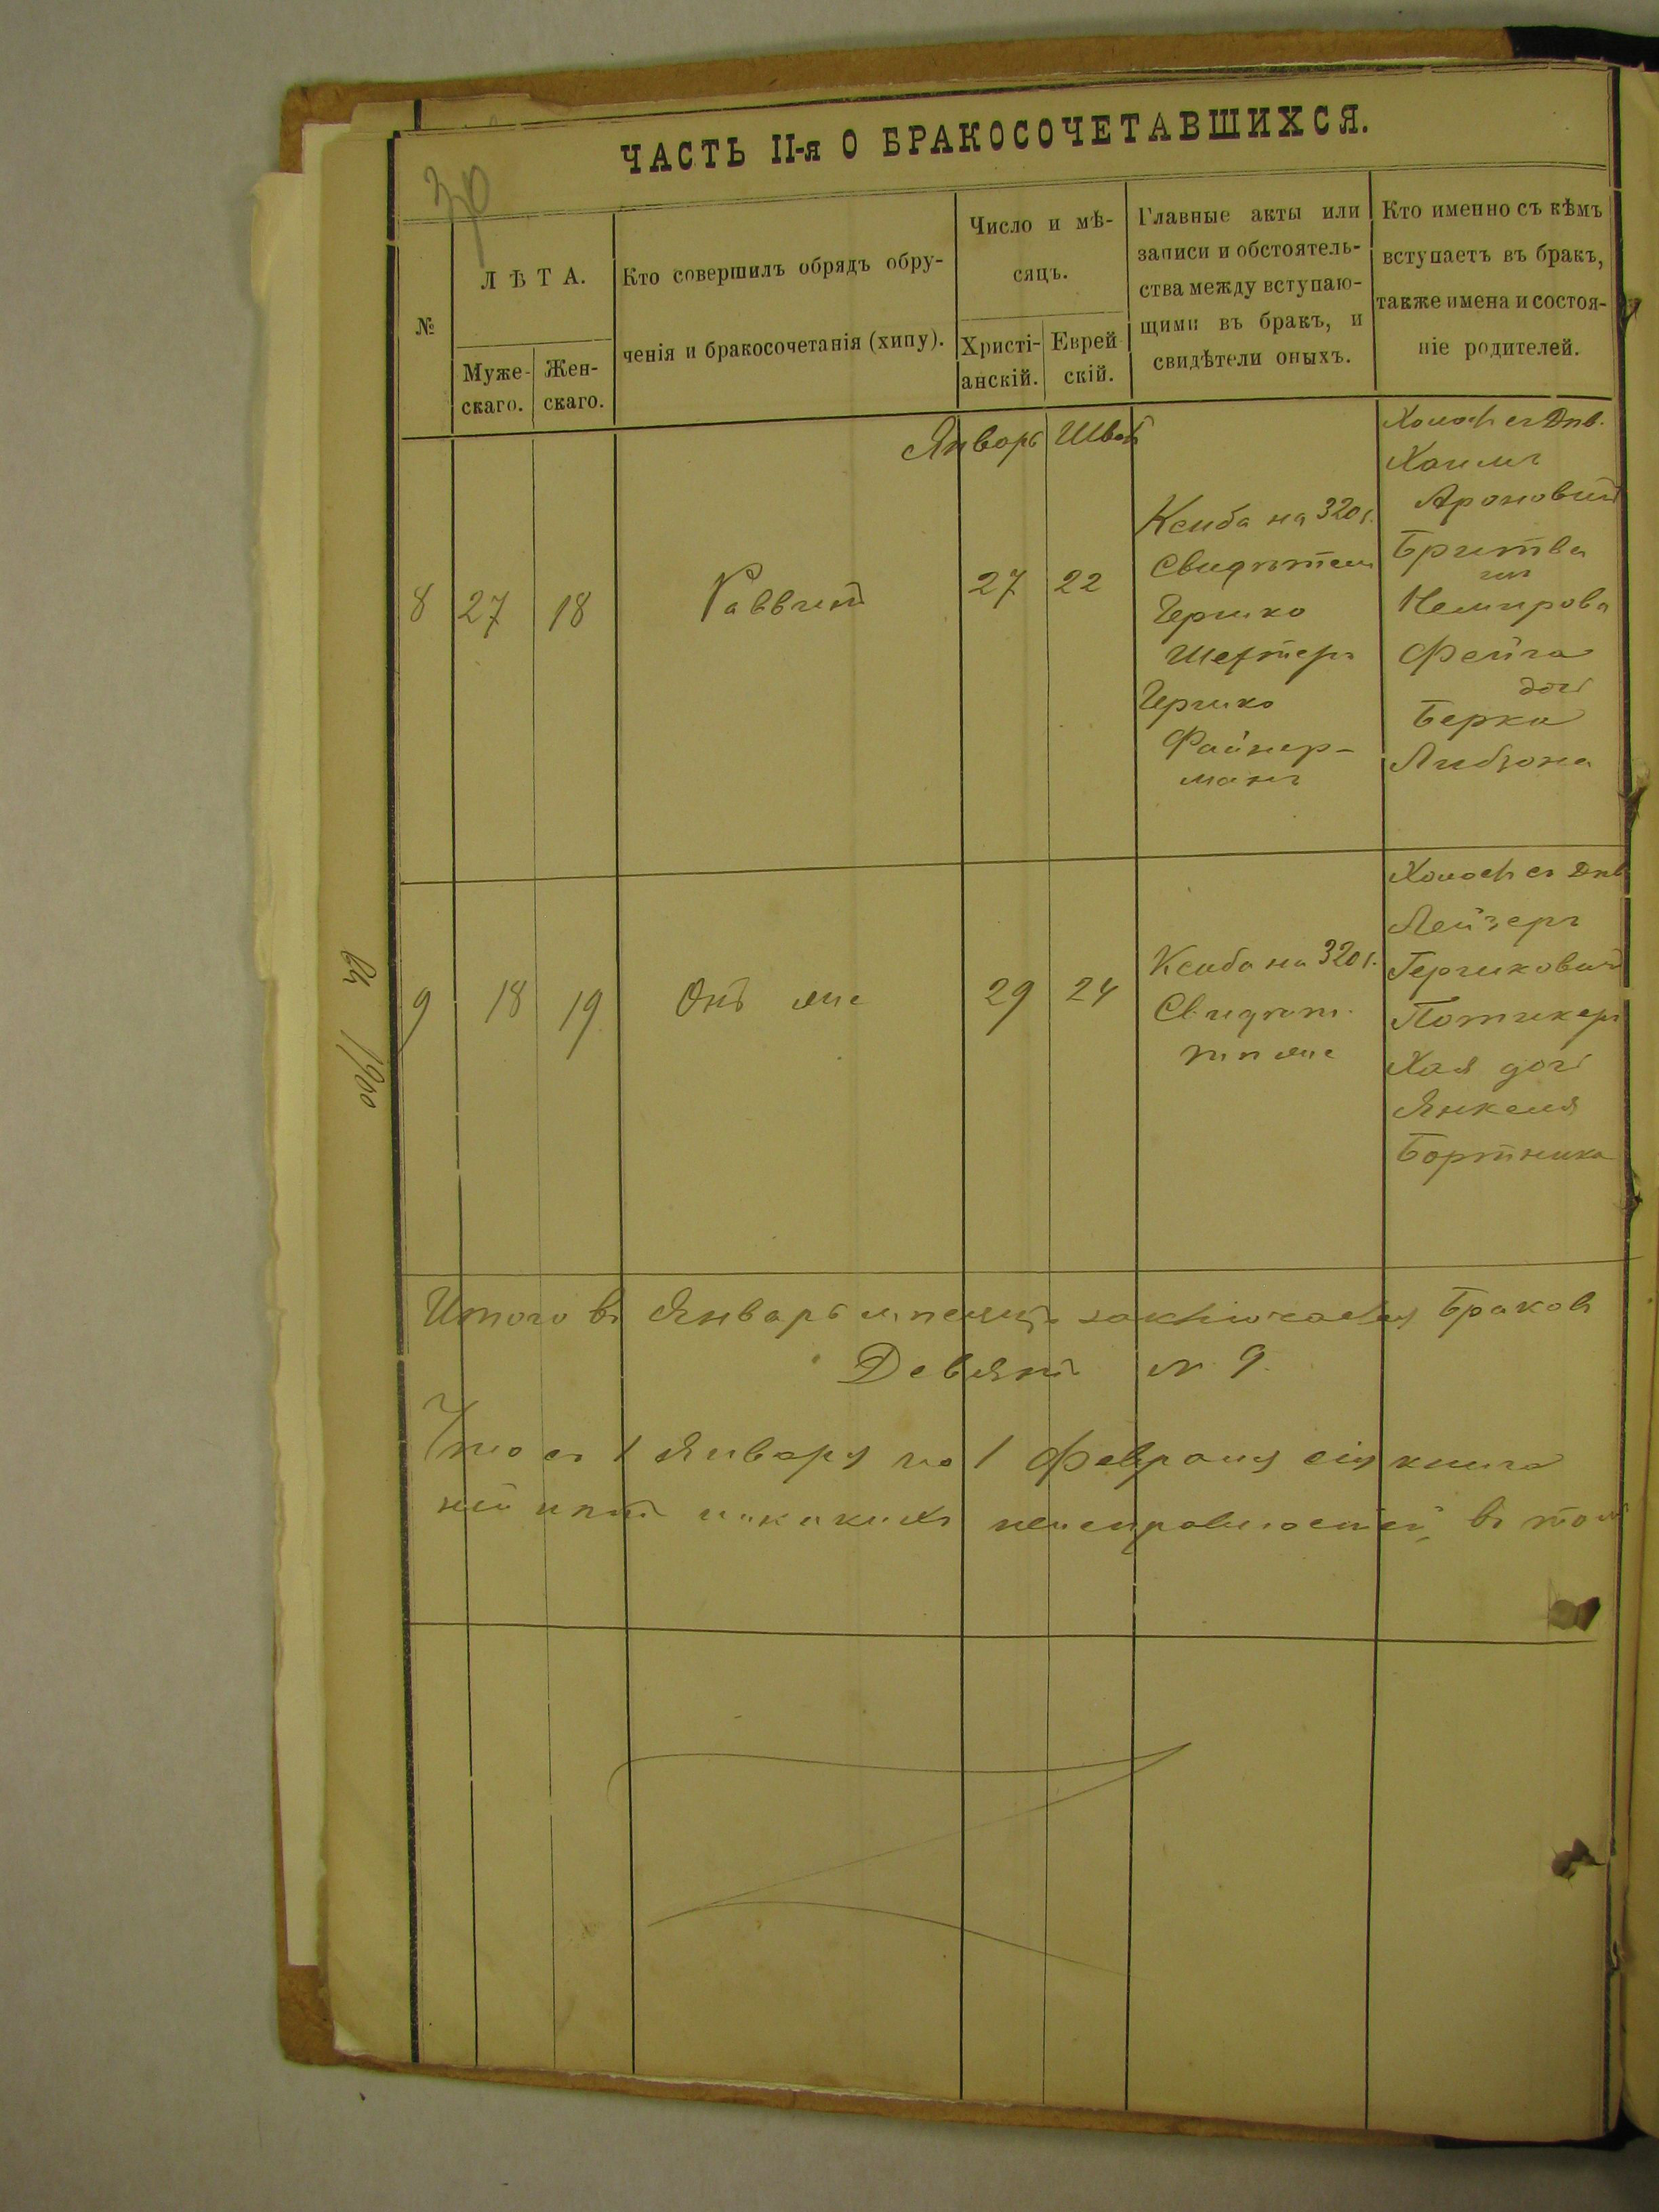 30
ЧАСТЬ II-я О БРАКОСОЧЕТАВШИХСЯ.
№
ЛѢТА.
Муже-
скаго.
Жен-
скаго.
Кто совершилъ обрядъ обру-
ченія и бракосочетанія (хипу).
Число и мѣ-
сяцъ.
Христі-
анскій.
Еврей
скій.
Главные акты или
записи и обстоятель-
ства между вступаю-
щими въ бракъ, и
свидѣтели оныхъ.
Кто именно съ кѣмъ
вступаетъ въ бракъ,
также имена и состоя-
ніе родителей.
Январь Шват
8 27 18 Раввинъ 27 22
на 320 г.
Свидѣтели
Гершко
Шехтеръ
Гершко
Файнер-
манъ
Хаимъ
Ароновичъ
Бритва
или
Немирова
Фейга
доч
Берка
9 18 19 Онъ же 29 24
на 320 г.
Свидѣт.
тѣ же
Лейзеръ
Гершковичъ
Хая доч
Янкеля
Бортника
Итого въ Январѣ мѣсяцѣ браковъ
Девять № 9.
Что съ 1 Января по 1 Февраля сія книга
никакихъ неисправностей, въ том
1900